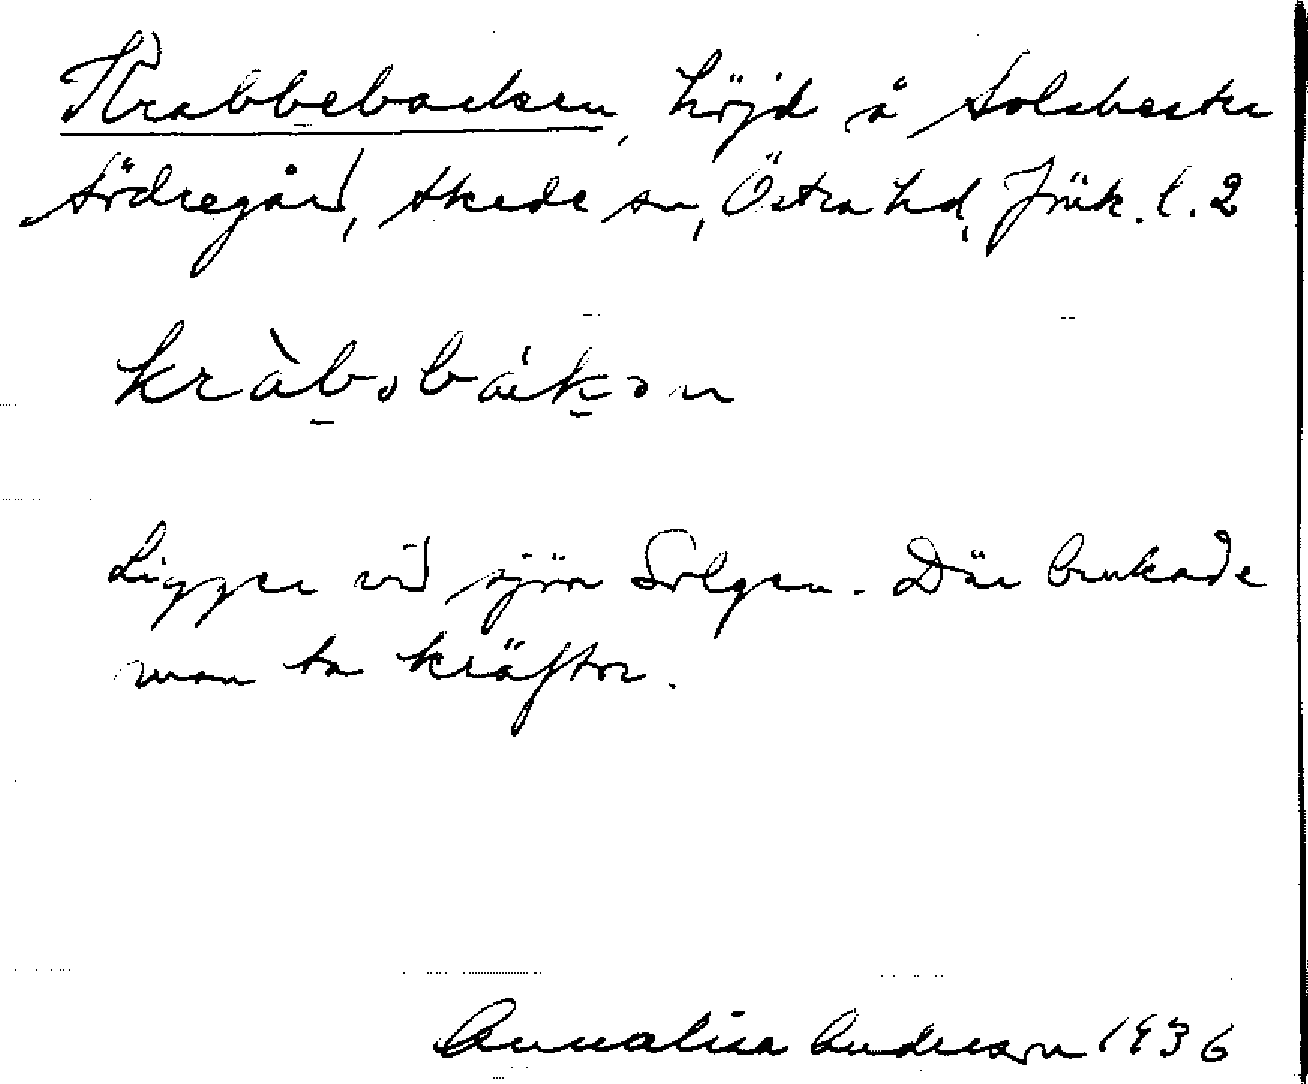 Krabbebacken, höjd å Solsberke
Södregård, Skede sn, Östra hd, Jönk. l. 2
kràb̠ɔbák̠ɔn
Ligger vid sjön Solgen. Där brukade
man ta kräftor.
Annalisa Anderson 1936